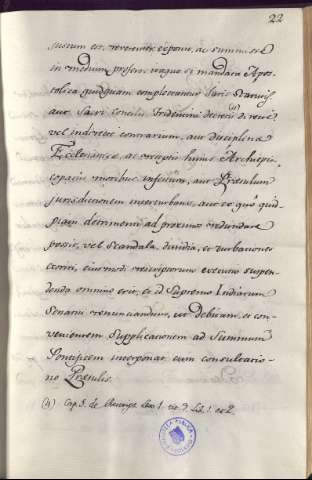 22
susum est, reverenter exponat, ac summisse
in medium proferat, itaque si mandata Apos-
tolica quidquam complectantur Juris Statutis,
aut Sacri Concilii Tridentini decretis directè
vel indirectè contrarium, aut disciplinæ
Ecclesiasticæ, ac receptis hujus Archiepis-
copatus moribus infestum, aut Prætulum
jurisdictionem interturbans, aut ex quo quid-
piam detrimenti ad proximos redundare
possit, vel Scandala, dissidia, et turbationes
exoriri, ejusmodi rescriptorum executio suspen-
denda omnino erit, et à Supremo Indiarum
Senatui renunciandum, ut debitam, et con-
venientem Supplicationem ad Summum
Pontificem interponat cum consultatio-
ne Prætulis.
(4) Cap. 5. de Rescript. Lex 1. tit. 7. Lib. 1.
BIBLIOTECA PUBLICA